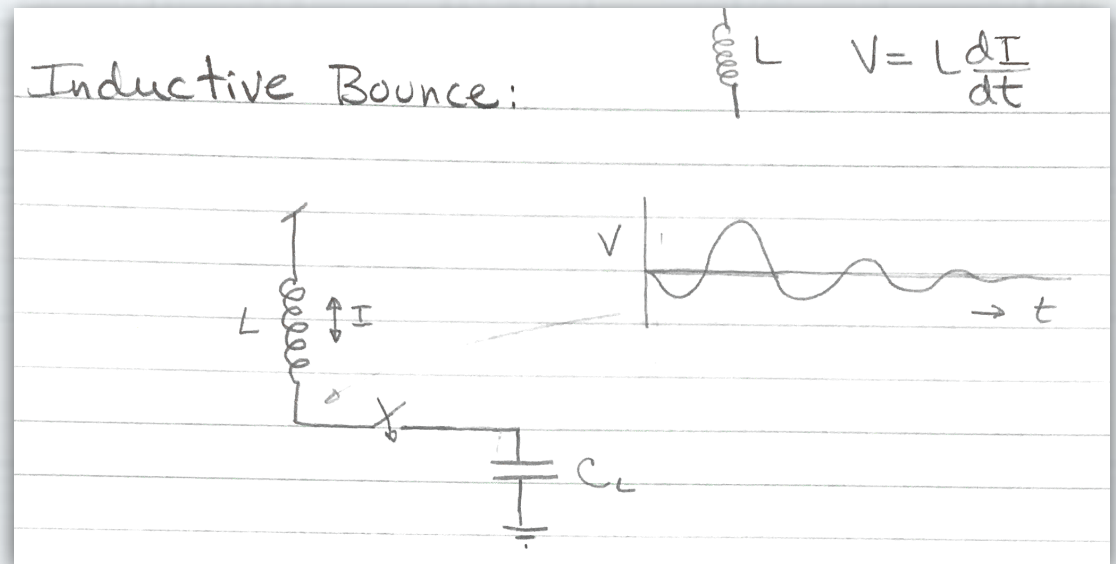 Inductive Bounce:
L V = L dI/dt
V
L I
→ t
C_L